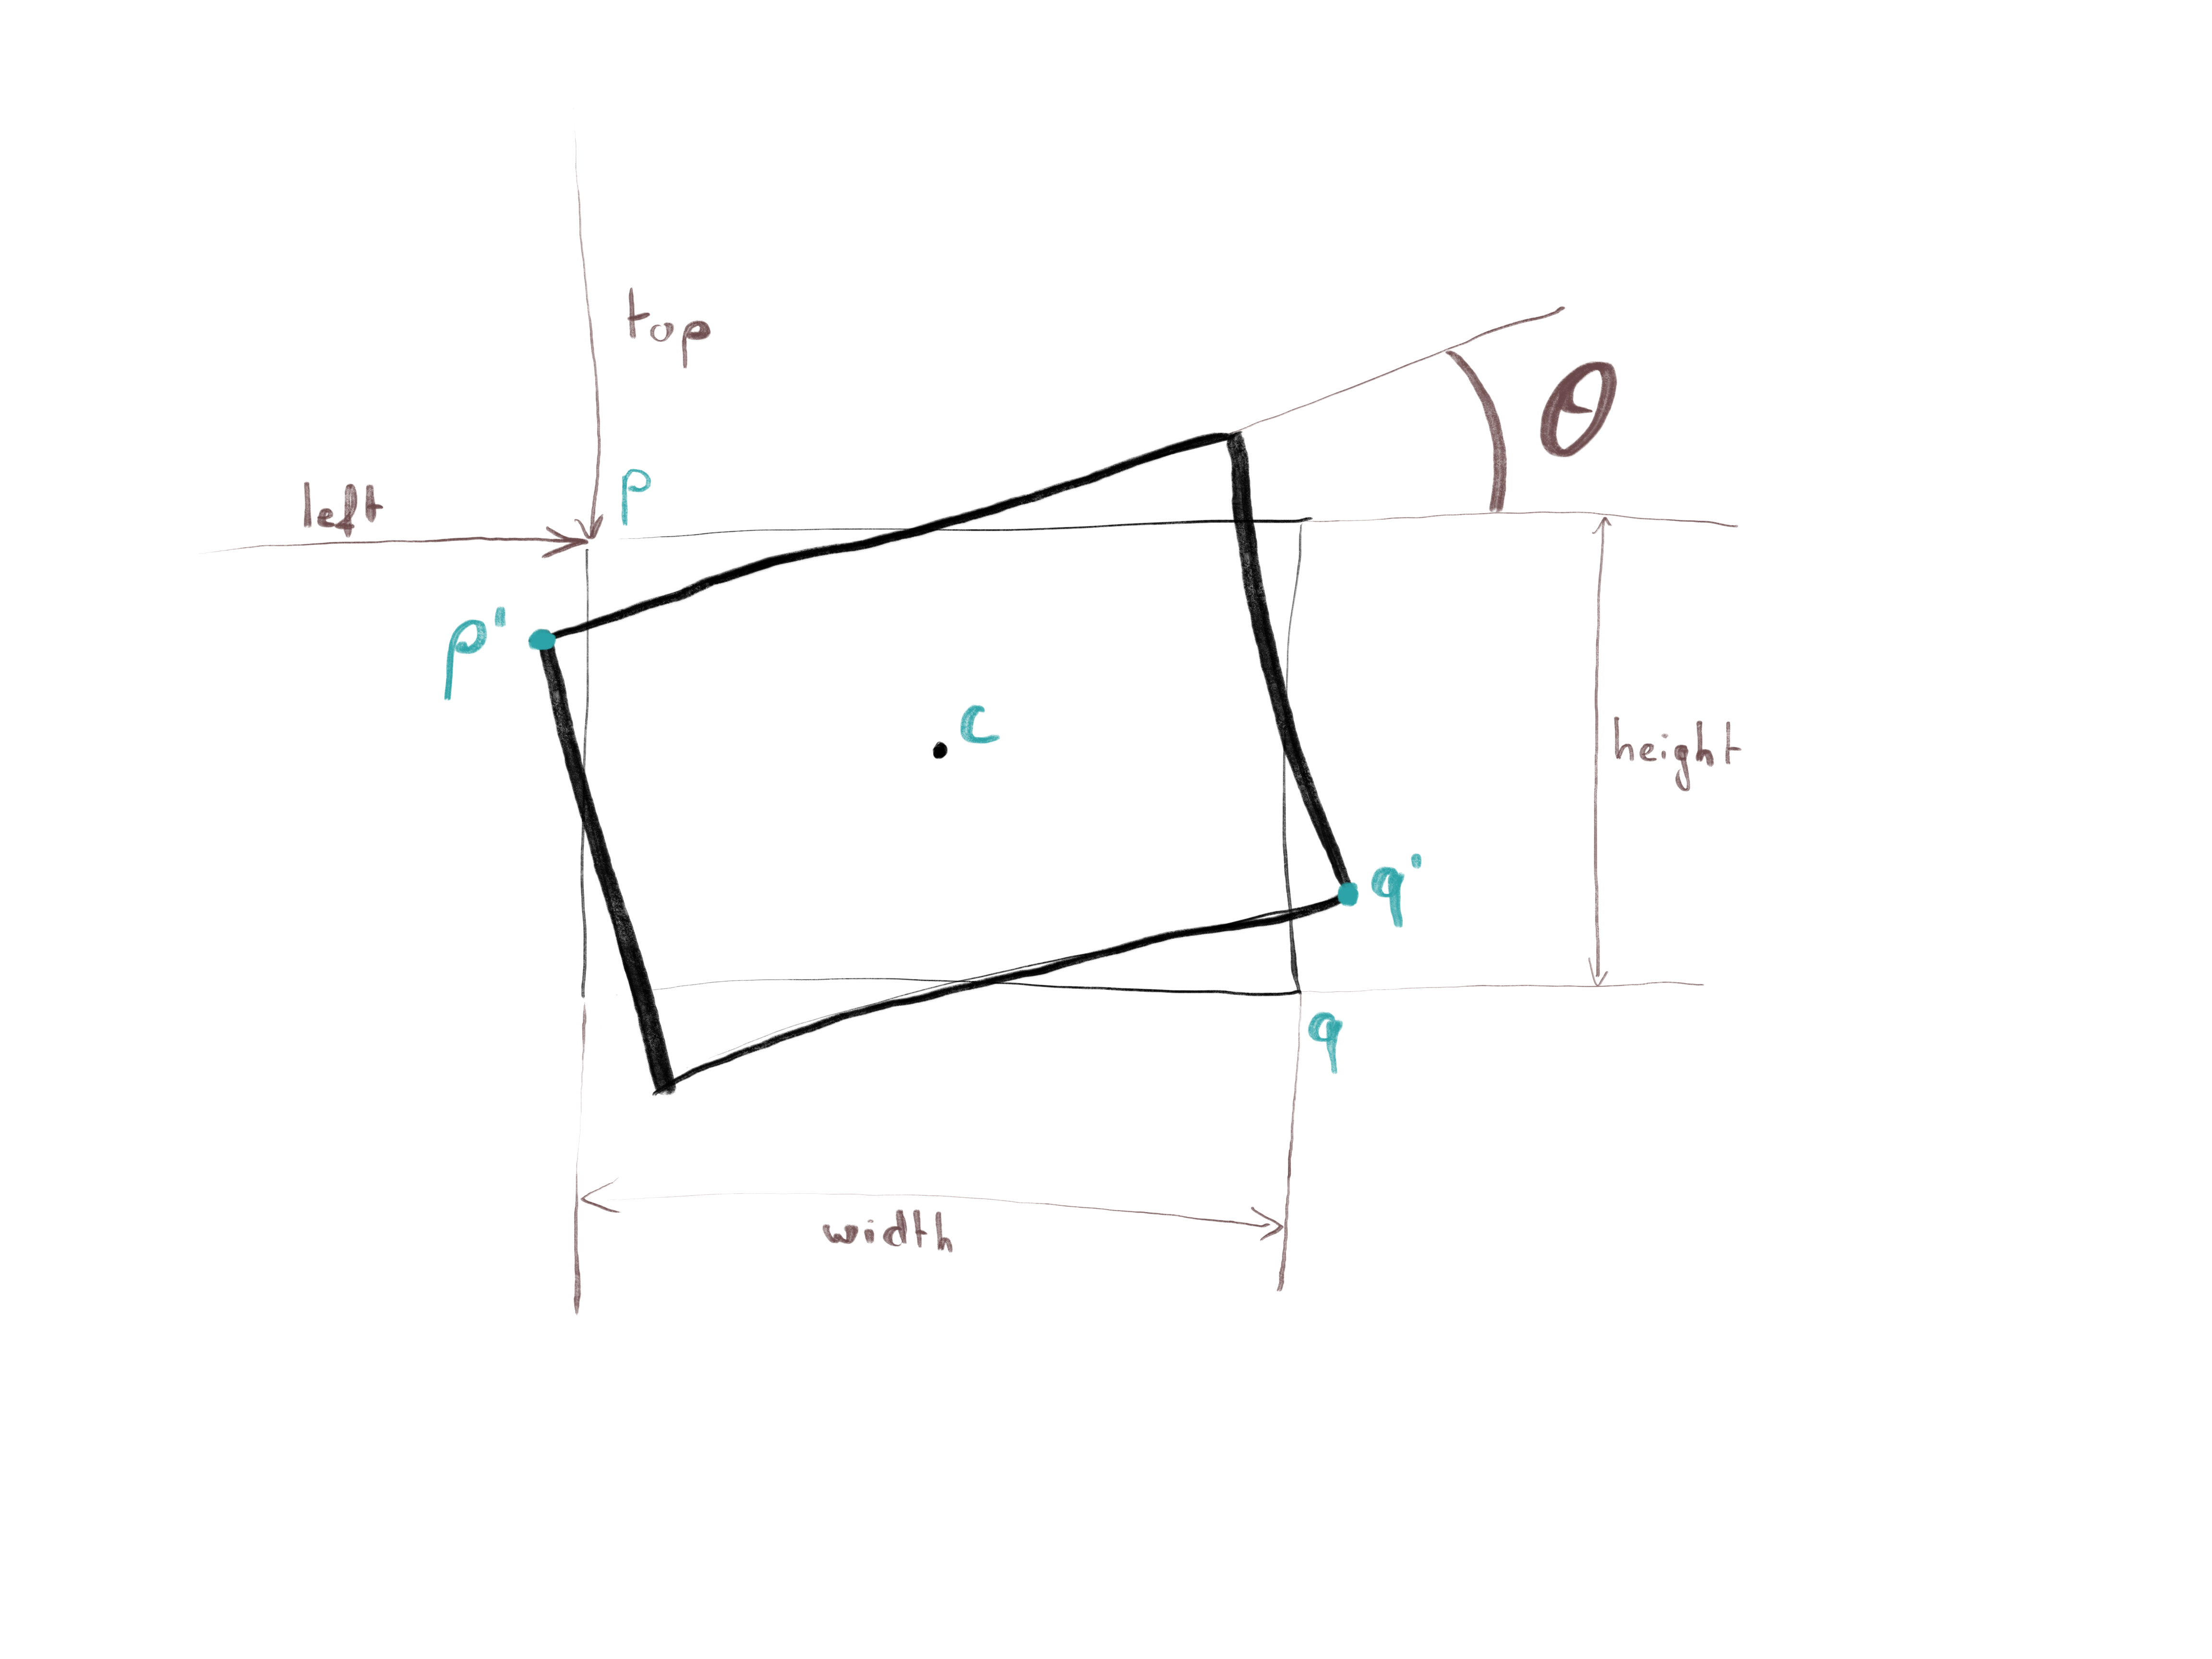 top
θ
left
p
p'
c
height
q'
q
width